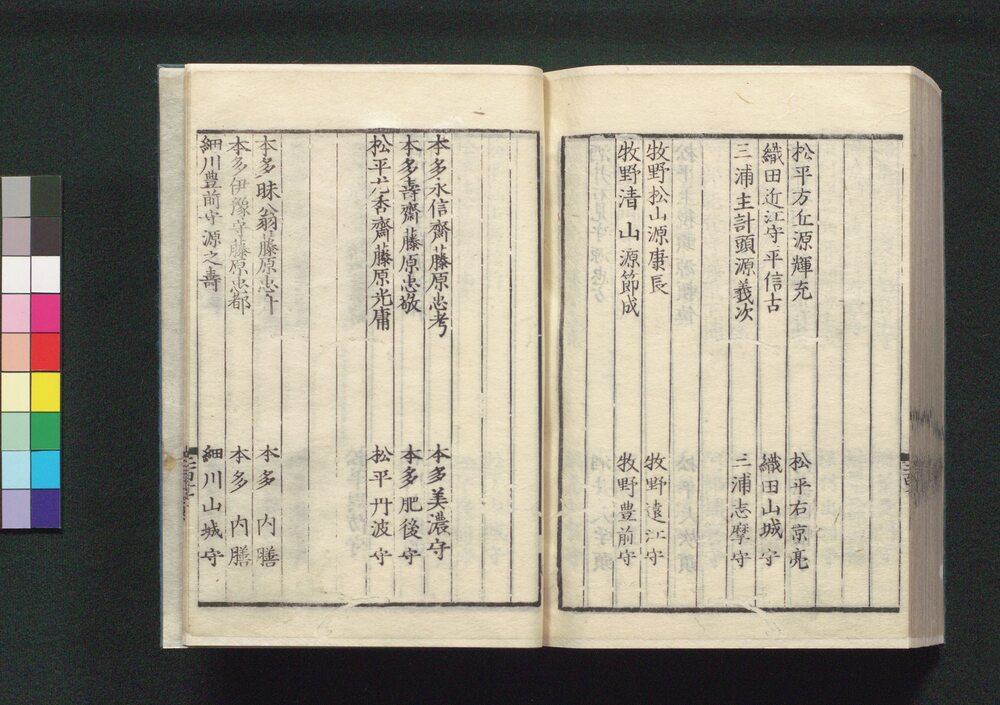 松平方丘源輝充 松平右京亮
織田近江守平信古 織田山城守
三浦主計頭源義次 三浦志摩守
牧野松山源康長 牧野遠江守
牧野清山源節成 牧野豊前守
本多永信齋藤原忠考 本多美濃守
本多壽齋藤原忠敬 本多肥後守
松平光香齋藤原光庸 松平丹波守
本多昧翁藤原忠升 本多内膳
本多伊豫守藤原忠都 本多内膳
細川豊前守源之壽 細川山城守